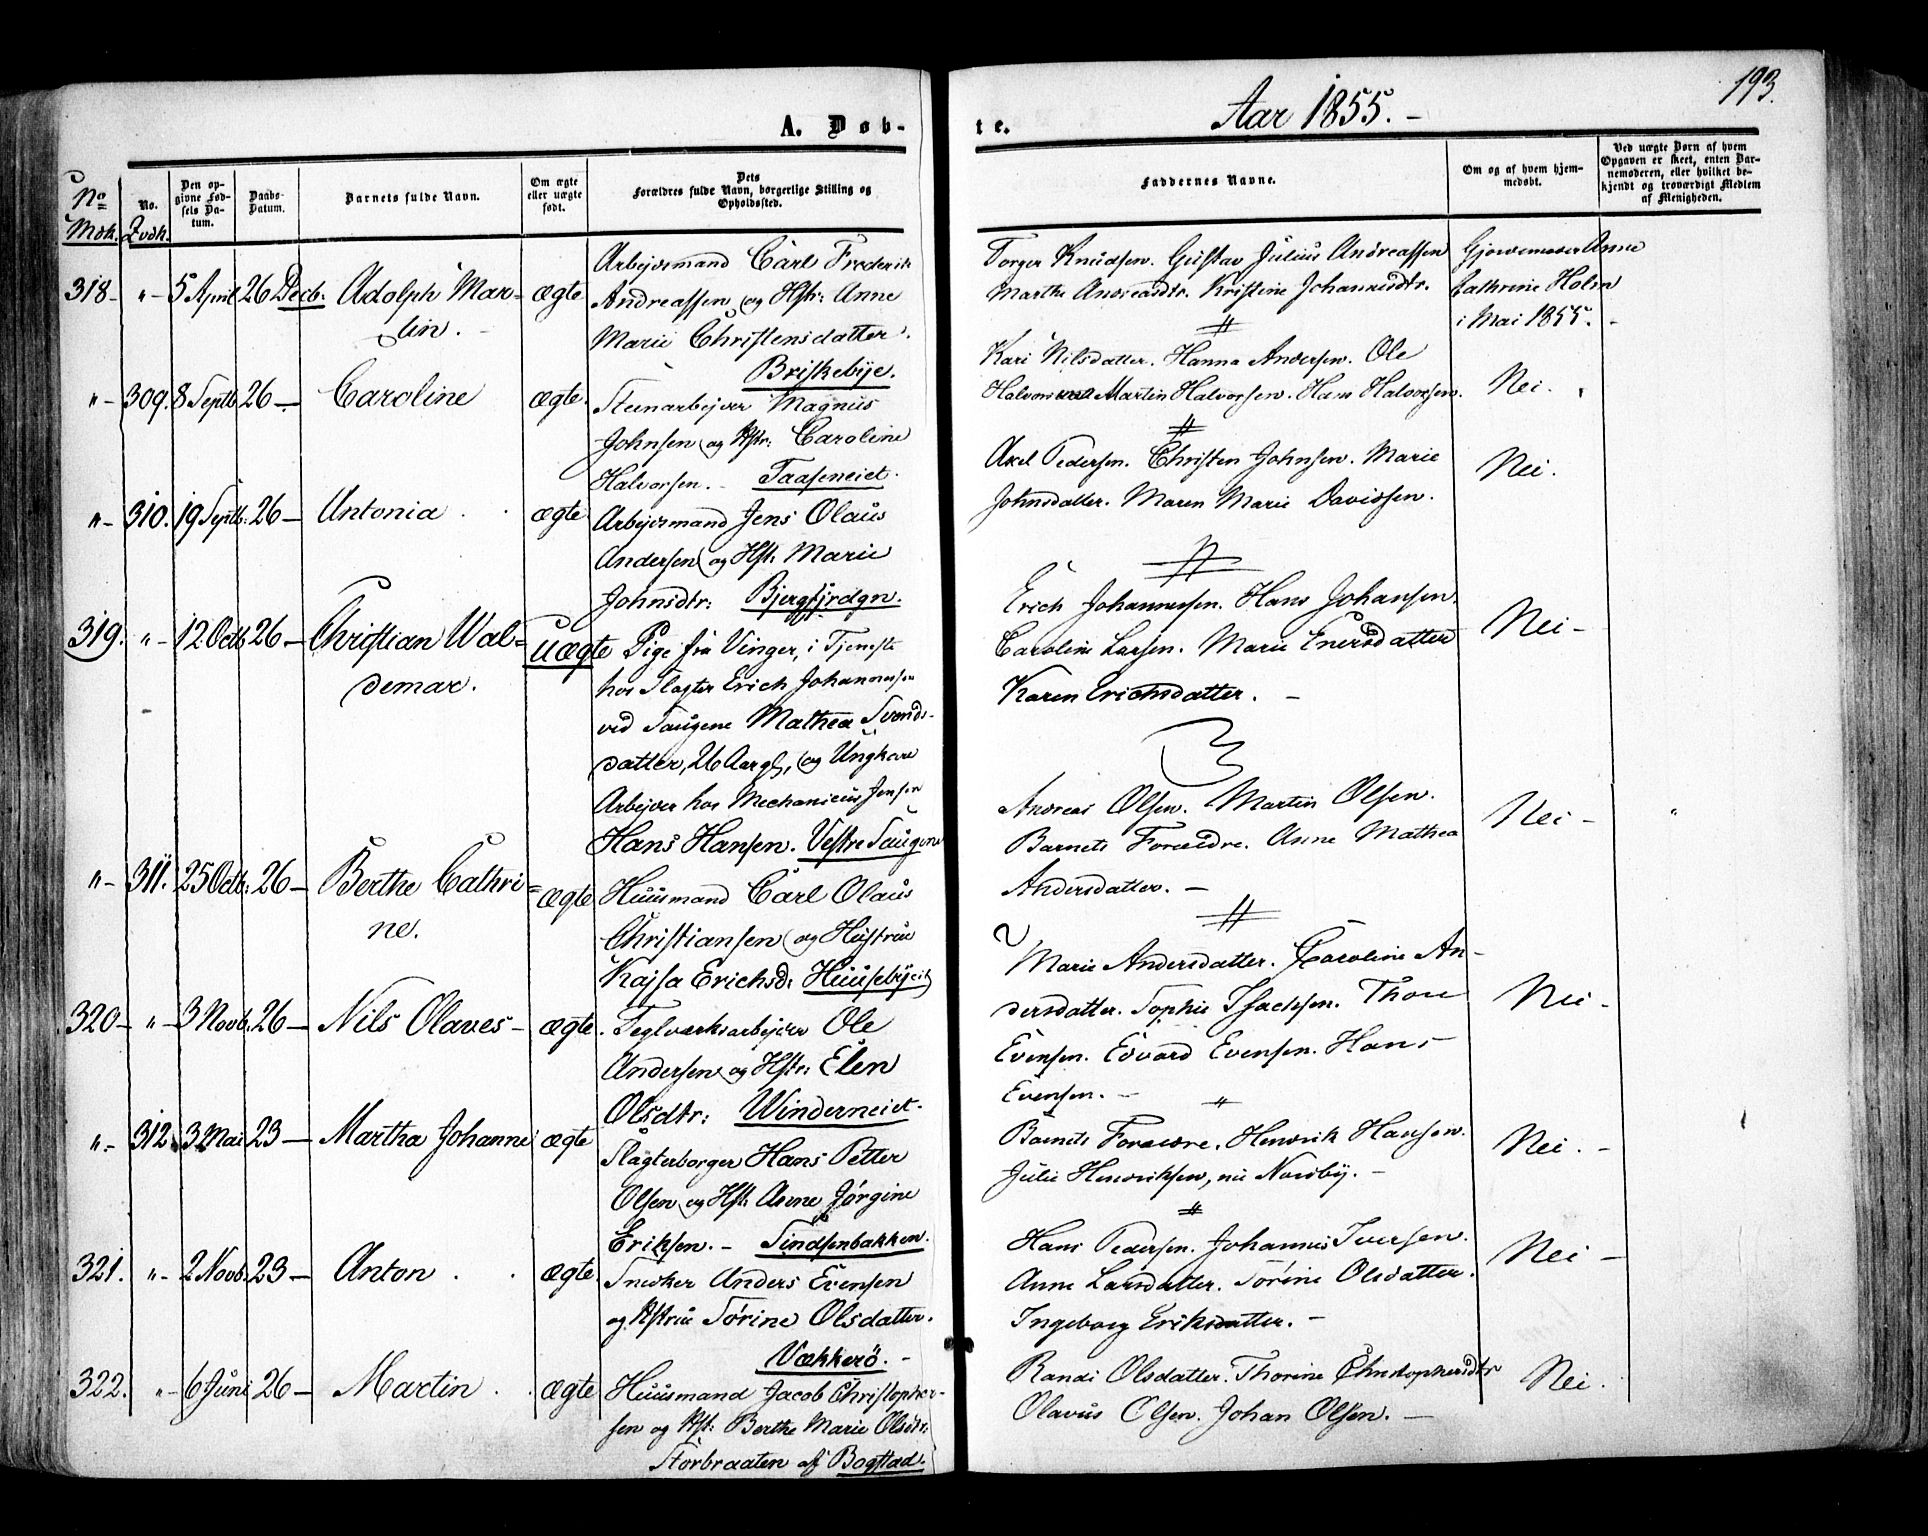 193.
A. Døb-
te.
Aar 1855. -
No Mdk.
No. Qvdk.
Den opgivne Fødsels Datum.
Daabs-Datum.
Barnets fulde Navn.
Om ægte eller uægte født.
Dets Forældres fulde Navn, borgerlige Stilling og Opholdssted.
Faddernes Navne.
Om og af hvem hjemmedøbt.
Ved uægte Børn af hvem Opgaven er skeet, enten Barnemoderen, eller hvilket bekjendt og troværdigt Medlem af Menigheden.
318- "- 5 April 26 Decb: Adolph Mar-
tin. -
ægte
Arbejdsmand Carl Frederik
Andreassen og Hstr: Anne
Marie Christensdatter.
Briskebye.
Torger Knudsen. Gustav Julius Andreassen
Marthe Andreasdtr. Kristine Johannesdtr.
Gjordemoder Anne
Cathrine Holm
i Mai 1855. -
"- 309. 8 Septb 26 - Caroline ægte.
Steenarbejder Magnus
Johnsen og Hstr: Caroline
Halvorsen. - Taaseneiet.
Kari Nilsdatter. Hanna Andersen. Ole
Martin Halvorsen. Hans Halvorsen.
Nei.
"- 310. 19 Septb: 26 - Antonia ægte
Arbejdsmand Jens Olaus
Andersen og Hst: Marie
Johnsdtr: Bjergfjrdgn.
Axel Pedersen. Christen Johnsen. Marie
Johnsdatter. Maren Marie Davidsen.
Nei.
319. "- 12 Octb 26 - Christian Wal-
demar.
uægte
Pige fra Vinger, i Tjeneste
hos Slagter Erich Johannessen
ved Saugene Mathea Svends-
datter, 26 Aar gl, og Ungkarl
Arbejder hos Mechanicus Jensen
Hans Hansen. Vestre Saugene
Erich Johannessen. Hans Johansen.
Caroline Larsen. Marie Enersdatter
Karen Erichsdatter. -
Nei -
"- 311. 25 Octb: 26 - Berthe Cathri-
ne.
ægte
Huusmand Carl Olaus
Christiansen og Hustrue
Kajsa Erichsd: Huusebyeit
Andreas Olsen. Martin Olsen.
Barnets Forældre. Anne Mathea
Andersdatter. -
Nei -
320 - "- 3 Novb. 26 - Nils Olaves - ægte.
Teglværksarbejder Ole
Andersen og Hstr: Elen
Olsdtr: Winderneiet.
Marie Andersdatter. Karoline An-
dersdatter. Sophie Isachsen. Thore
Evensen. Edvard Evensen. Hans
Evensen. -
Nei -
"- 312. 3 Mai 23 - Martha Johanne ægte
Slagterborger Hans Petter
Olsen og Hst: Anne Jørgine
Eriksen. - Tindsenbakken.
Barnets Forældre. Hendrik Hansen.
Julie Hendriksen, née Nordby. -
Nei. -
321. "- 2 Novb. 23 - Anton ægte.
Snedker Anders Evensen
og Hstrue Sørine Olsdatter.
Vækkerö. -
Hans Pedersen. Johannes Iversen.
Anne Larsdatter. Sørine Olsdatter.
Ingeborg Eriksdatter. -
Nei -
322. "- 6 Juni 26 - Martin ægte
Huusmand Jacob Christopher-
sen og Hst: Berthe Marie Olsdtr:
Storbraaten af Bogstad.
Randi Olsdatter. Thorine Christophersdtr
Olavus Olsen. Johan Olsen. -
Nei.